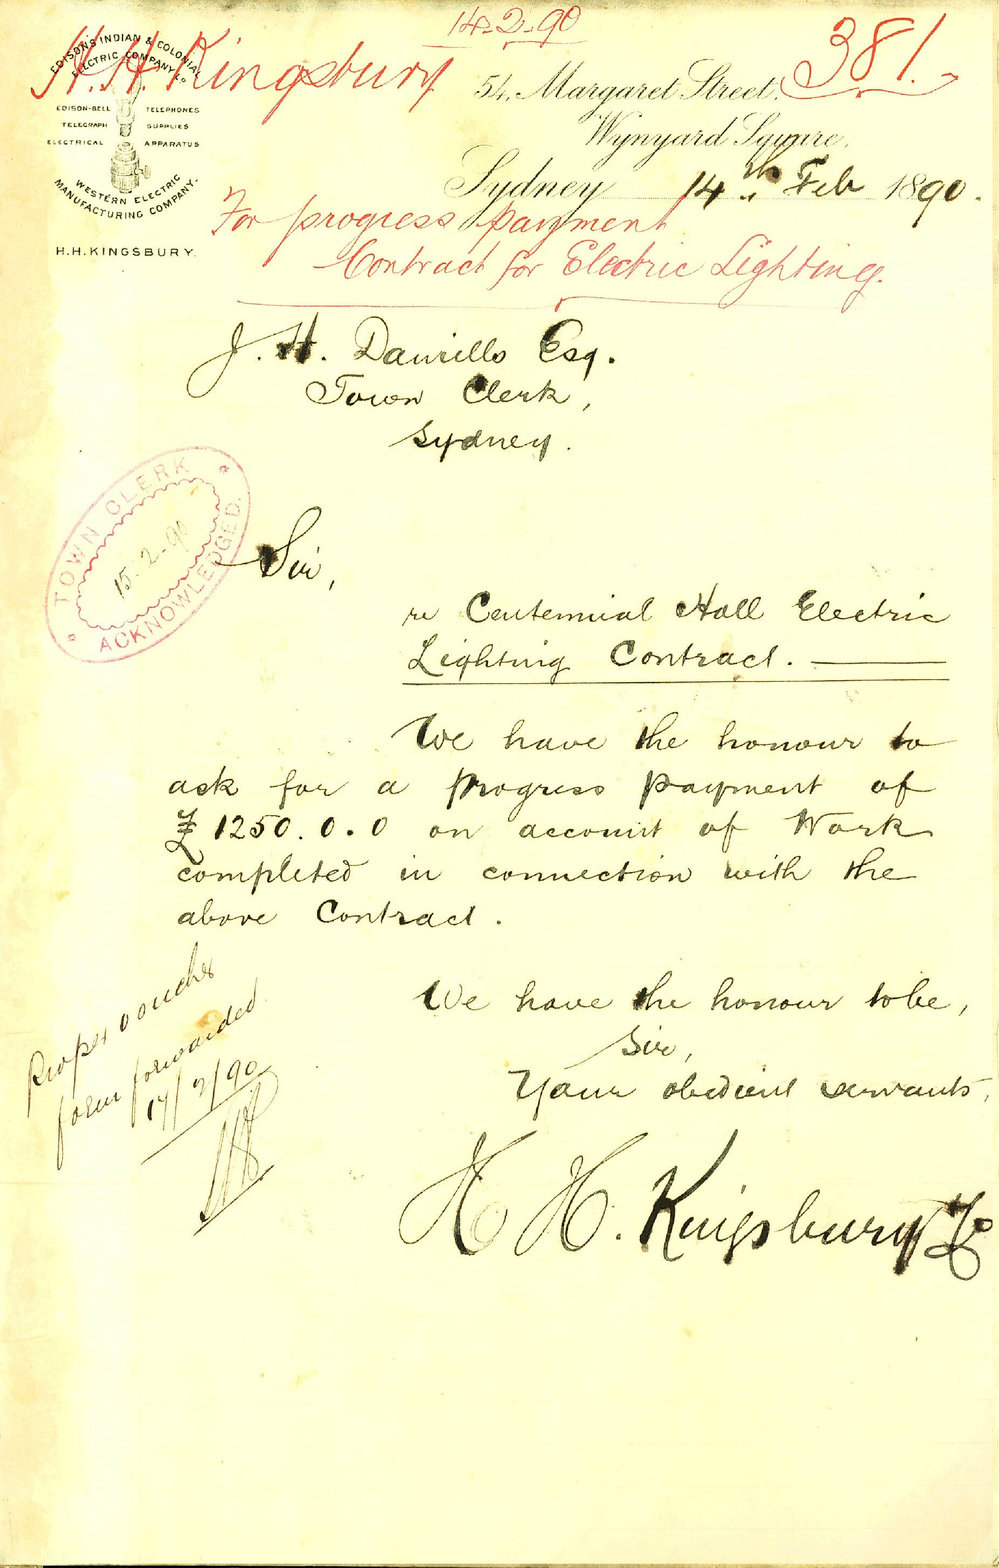 14-2-90
H. H. Kingsbury
381.
EDISON'S INDIAN & COLONIAL
ELECTRIC COMPANY Ld
EDISON-BELL TELEPHONES
TELEGRAPH SUPPLIES
ELECTRICAL APPARATUS
WESTERN ELECTRIC
MANUFACTURING COMPANY.
H.H.KINGSBURY.
54, Margaret Street,
Wynyard Square,
Sydney 14th Feb 1890.
For progress payment
Contract for Electric Lighting.
J. H. Daniells Esq.
Town Clerk,
Sydney.
TOWN CLERK
15.2.90
ACKNOWLEDGED.
Sir,
re Centennial Hall Electric
Lighting Contract.
We have the honour to
ask for a progress payment of
£1250.0.0 on account of Work
completed in connection with the
above Contract.
We have the honour to be,
Sir,
Your obedient servants,
H H. Kingsbury
Proper voucher
form forwarded
17/2/90